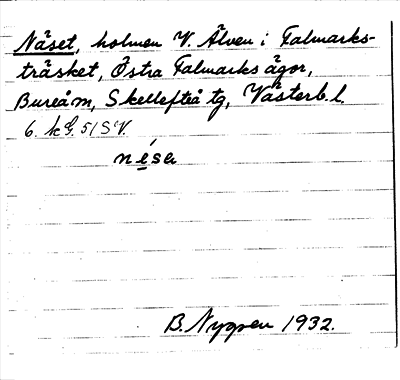 Näset, holmen V. Älven i Falmarks-
träsket, Östra Falmarks ägor,
Bureå m, Skellefteå tg, Västerb. l.
6. k 51 SV.
nésa
B. Nygren 1932.